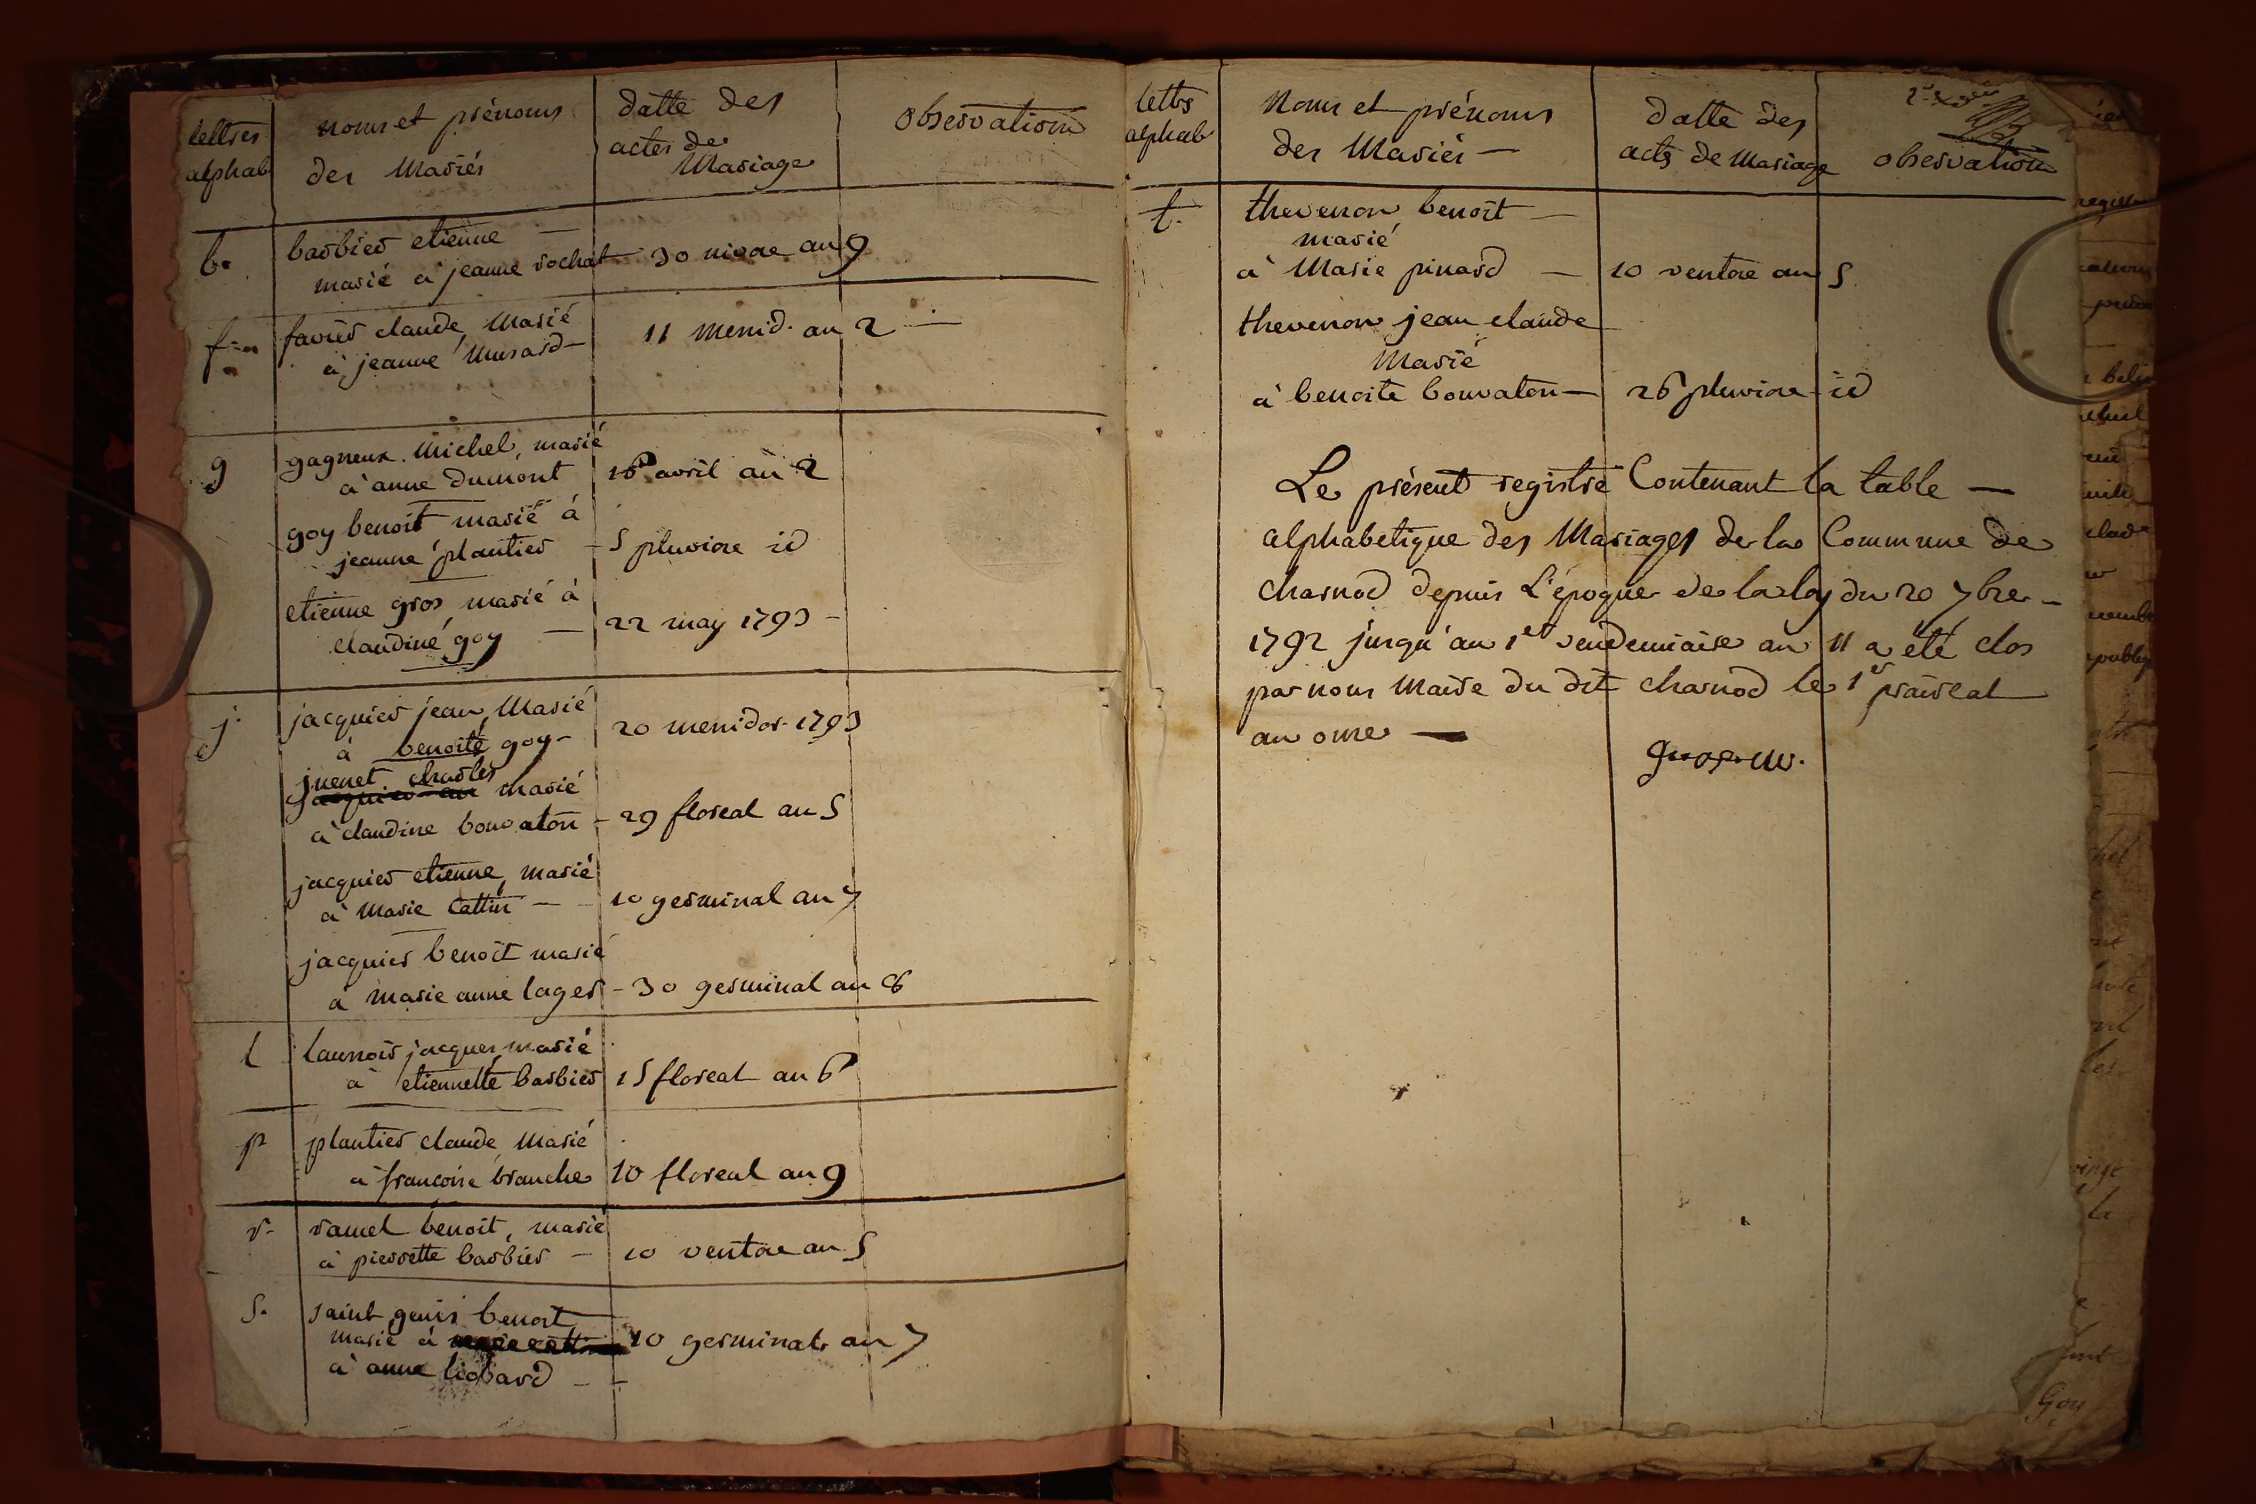 lettres
alphab
noms et prénoms
des Mariés
datte des
actes de
Mariage
observations
b.
barbier etienne —
marié à jeanne rochat
30 nivose an 9
f.
favier claude, Marié
à jeanne Murard —
11 messid. an 2 —
g
gagneux Michel, marié
à anne dumont
16 avril an 2
goy benoit marié à
jeanne plantier
5 pluviose id
etienne gros marié à
claudine goy —
22 may 1793 —
j.
jacquier jean, Marié
à benoite goy —
20 messidor 1793
juenet charles
marié
à claudine bouvaton —
29 floreal an 5
jacquier etienne, marié
à Marie Cattin —
10 germinal an 7
jacquier benoit marié
à marie anne lager —
30 germinal an 8
l
launois jacques marié
à etiennette barbier
15 floreal an 6
p
plantier claude, Marié
à francoise branche
10 floreal an 9
r.
ramel benoit, marié
à pierrette barbier —
10 ventose an 5
s.
saint genis benoit
marié à
à anne liobard —
10 germinal an 7
lettrs
alphab
Noms et prénoms
des Mariés —
datte des
acts de Mariage
observations
t.
thevenon benoit —
marié
à Marie pinard —
10 ventose an 5
thevenon jean claude
Marié
à benoite bouvaton —
26 pluviose id
Le présent registre Contenant la table —
alphabetique des Mariages de la Commune de
charnod depuis L'époque de la loy du 20 7bre —
1792 jusqu'au 1er vendemiaire an 11 a été clos
par nous Maire du dit charnod le 1er prairial
an onze —
Gros m.
Goy